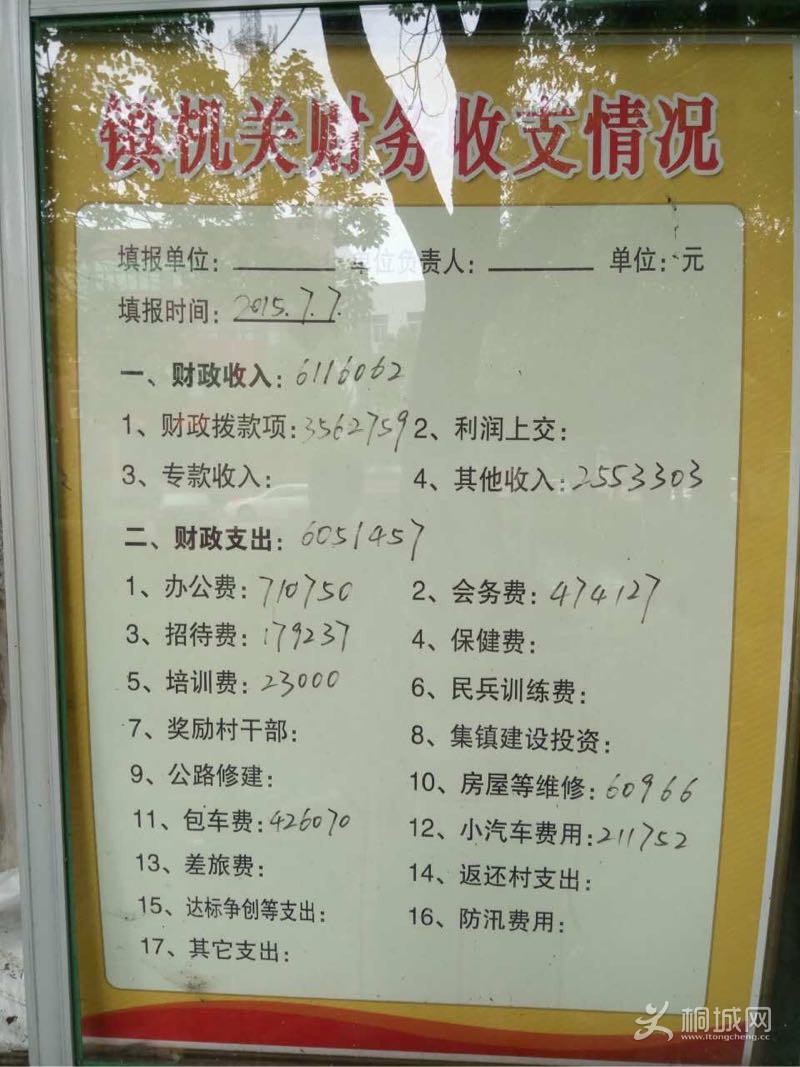 镇机关财务收支情况
填报单位：______ 单位负责人：______ 单位：元
填报时间：2015.7.7.
一、财政收入：6116062
1、财政拨款项：3562759 2、利润上交：
3、专款收入： 4、其他收入：2553303
二、财政支出：6051457
1、办公费：710750 2、会务费：474127
3、招待费：179237 4、保健费：
5、培训费：23000 6、民兵训练费：
7、奖励村干部： 8、集镇建设投资：
9、公路修建： 10、房屋等维修：60966
11、包车费：426070 12、小汽车费用：211752
13、差旅费： 14、返还村支出：
15、达标争创等支出： 16、防汛费用：
17、其它支出：
桐城网
www.itongcheng.cc